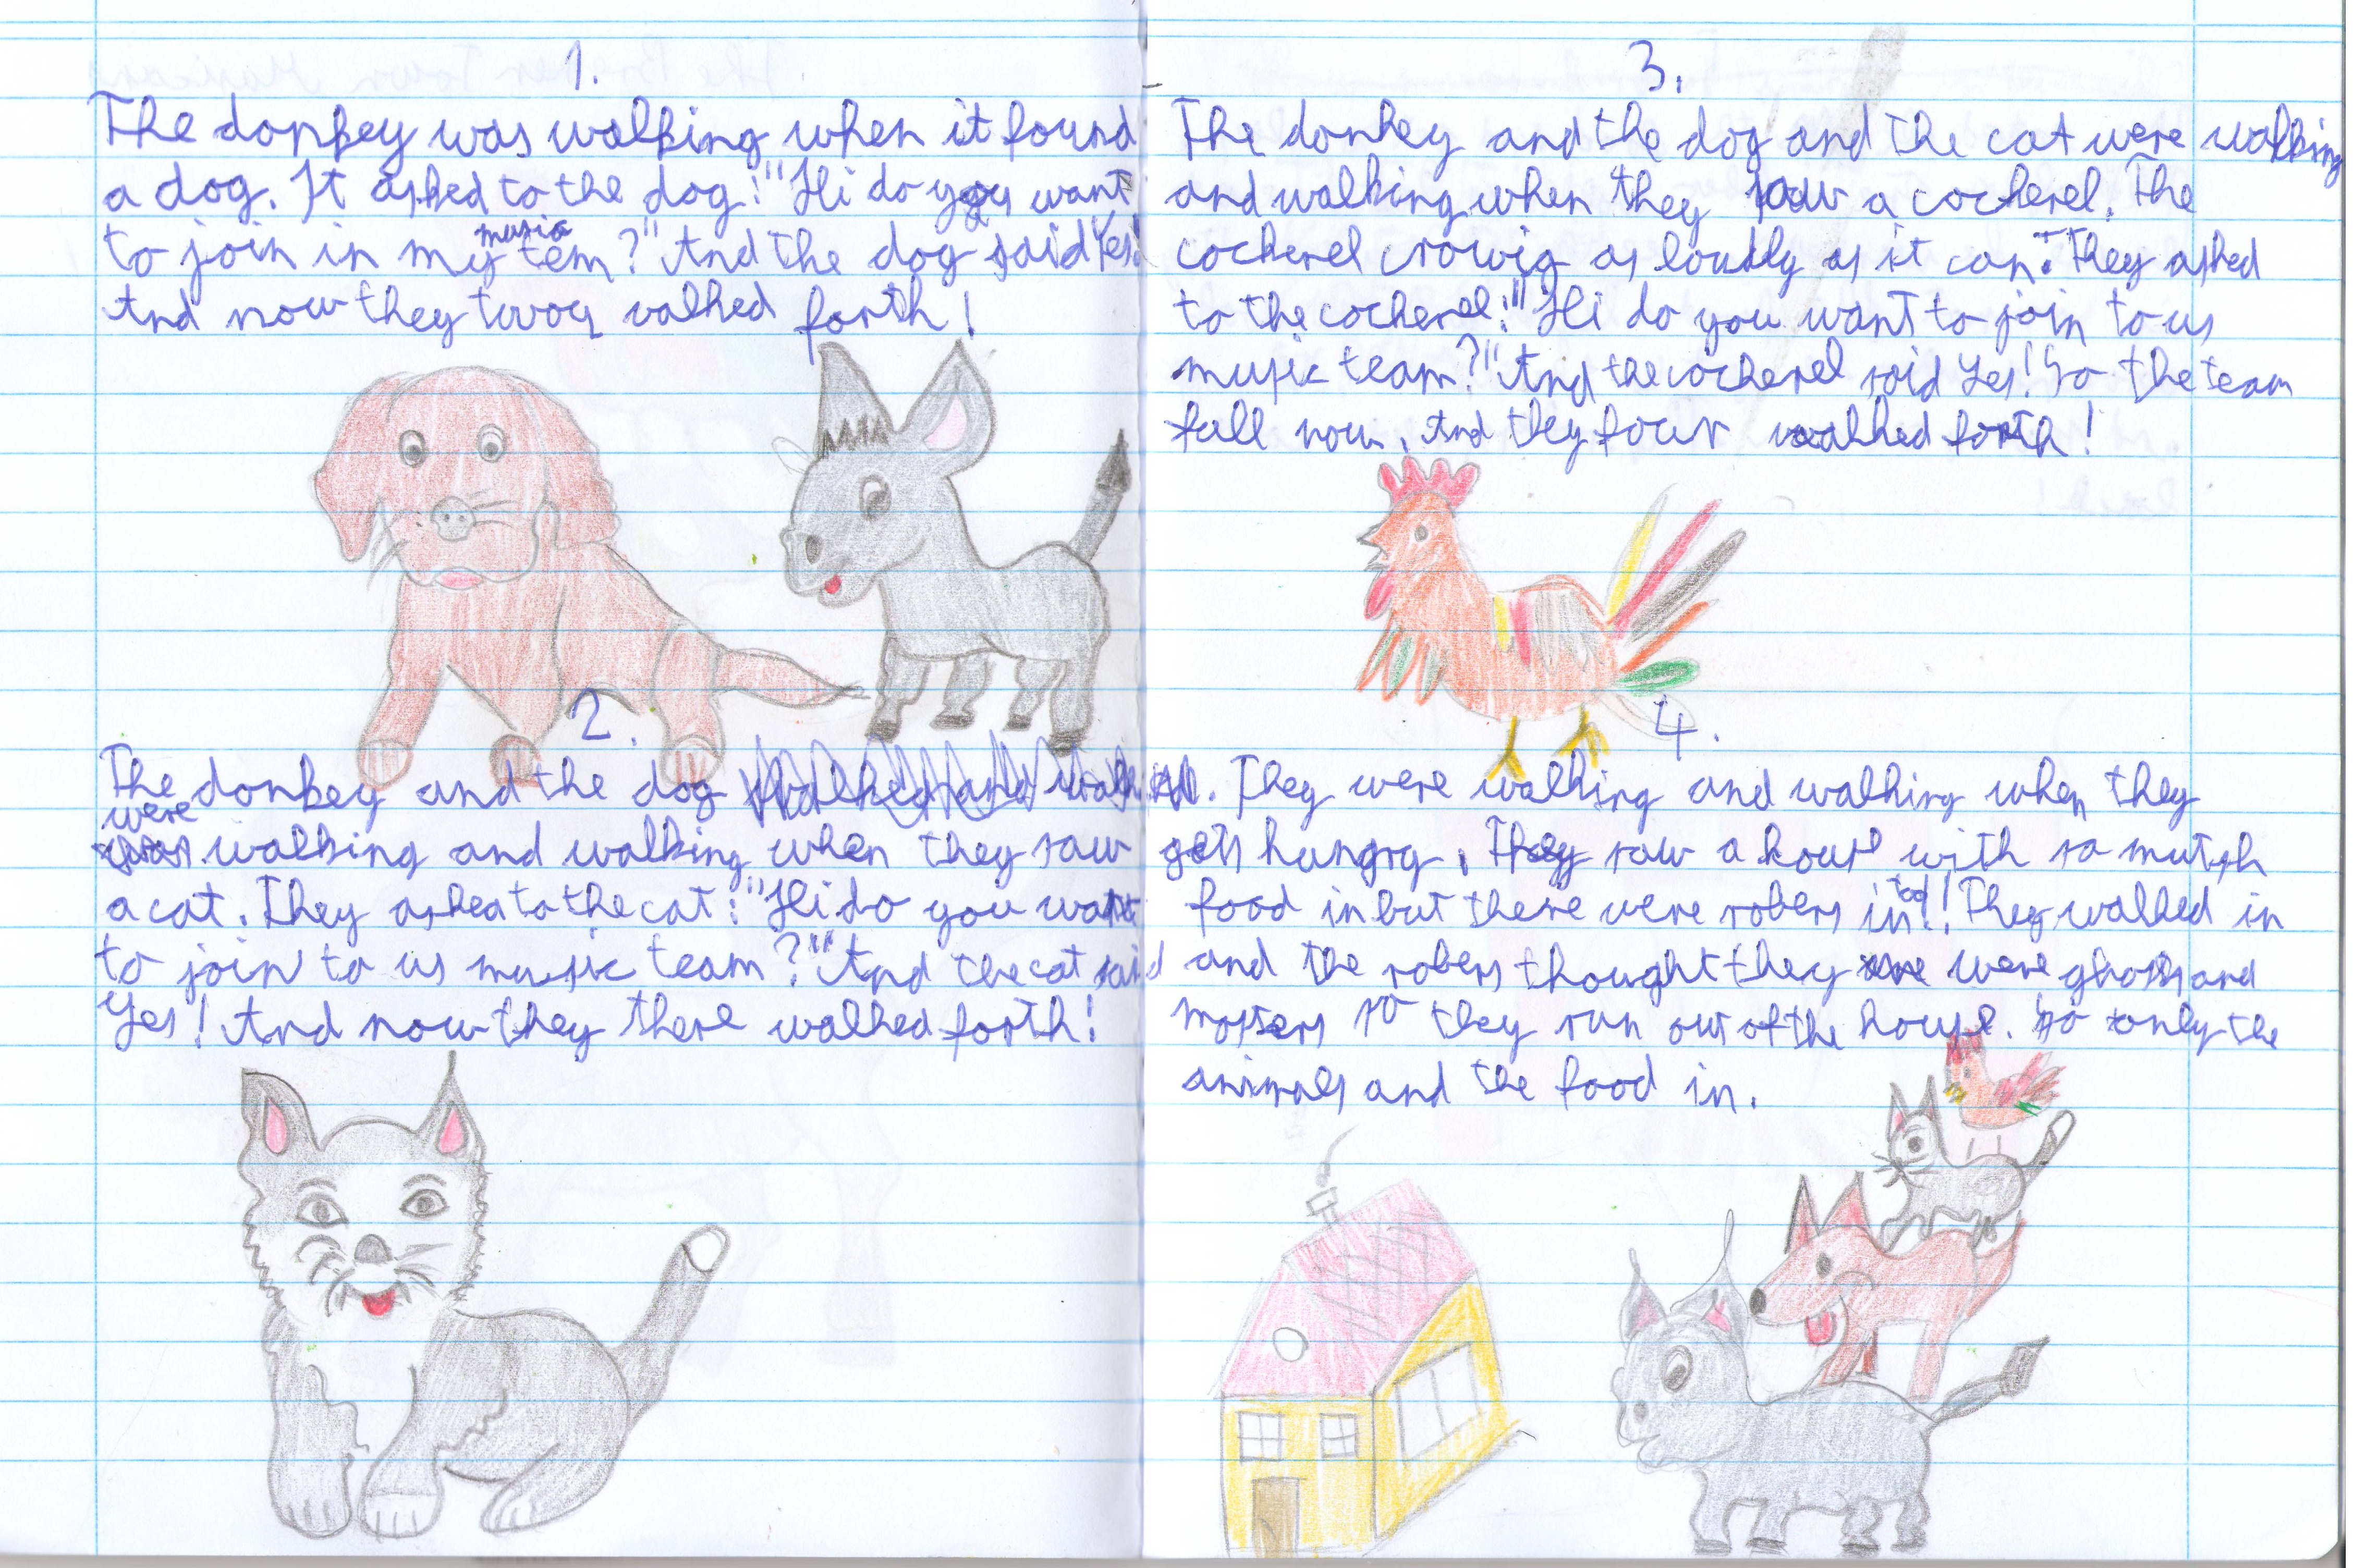 1.
The donkey was walking when it found
a dog. It asked to the dog: "Hi do you want
to join in my music tem?" And the dog said Yes!
And now they twoo walked forth!
2.
The donkey and the dog
were walking and walking when they saw
a cat. They asked to the cat: "Hi do you want
to join to us music team?" And the cat said
Yes! And now they there walked forth!
3.
The donkey and the dog and the cat were walking
and walking when they saw a cockerel. The
cockerel crowig as loudly as it can. They asked
to the cockerel: "Hi do you want to join to us
music team?" And the cockerel said Yes! So the team
full now. And they four walked forth!
4.
They were walking and walking when they
gets hungry. They saw a house with so mutsh
food in but there were robers in too! They walked in
and the robers thought they were ghosts and
mosters so they run out of the house. So only the
animals and the food in.